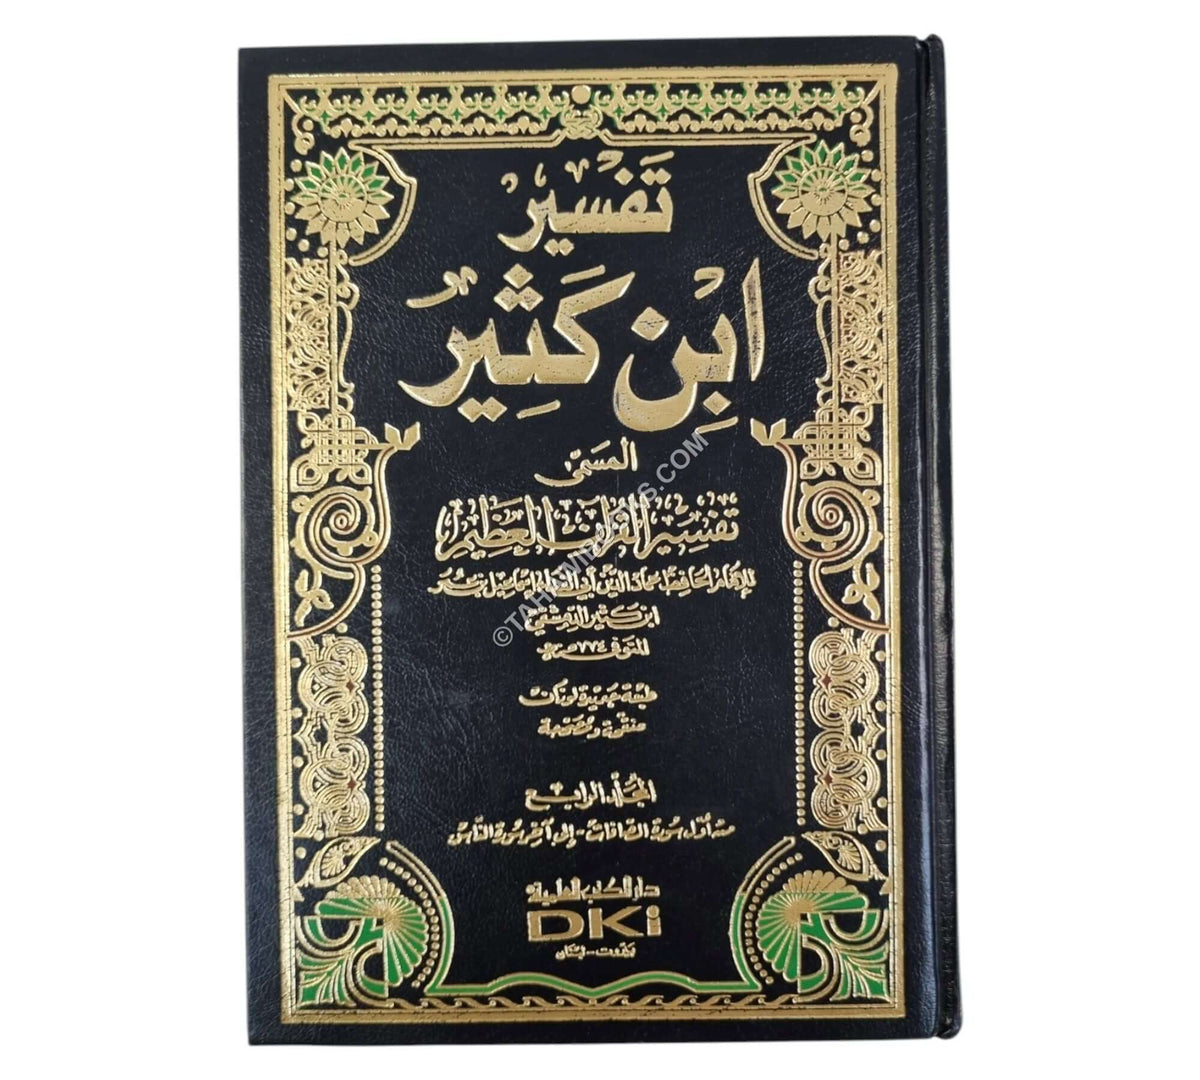 تَفْسِيرُ
ابْنِ كَثِيرٍ
المسَمّى
تفسير القرآن العظيم
للإمام الحافظ عماد الدين أبي الفداء إسماعيل بن عمر
ابن كثير الدمشقي
المتوفى ٧٧٤ هـ
طبعة جديدة
منقحة ومصححة
المجلد الرابع
من أول سورة الصافات - إلى آخر سورة الناس
دار الكتب العلمية
DKi
بيروت - لبنان
©TAHAWIBOOKS.COM